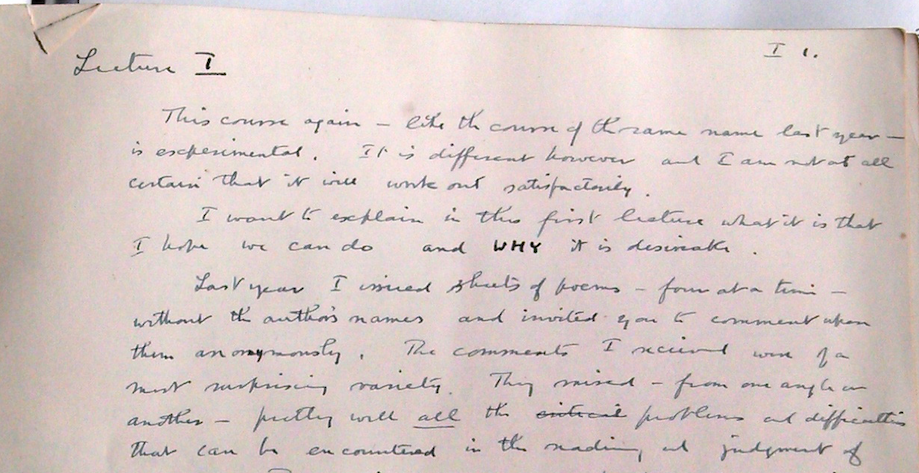 I 1.
Lecture I
This course again – like the course of the same name last year –
is experimental. It is different however and I am not at all
certain that it will work out satisfactorily.
I want to explain in this first lecture what it is that
I hope we can do and WHY it is desireable.
Last year I issued sheets of poems – four at a time –
without the author's names and invited you to comment upon
them anonymously. The comments I recieved were of a
most surprising variety. They raised – from one angle or
another – pretty well all the critical problems and difficulties
that can be encountered in the reading and judgment of